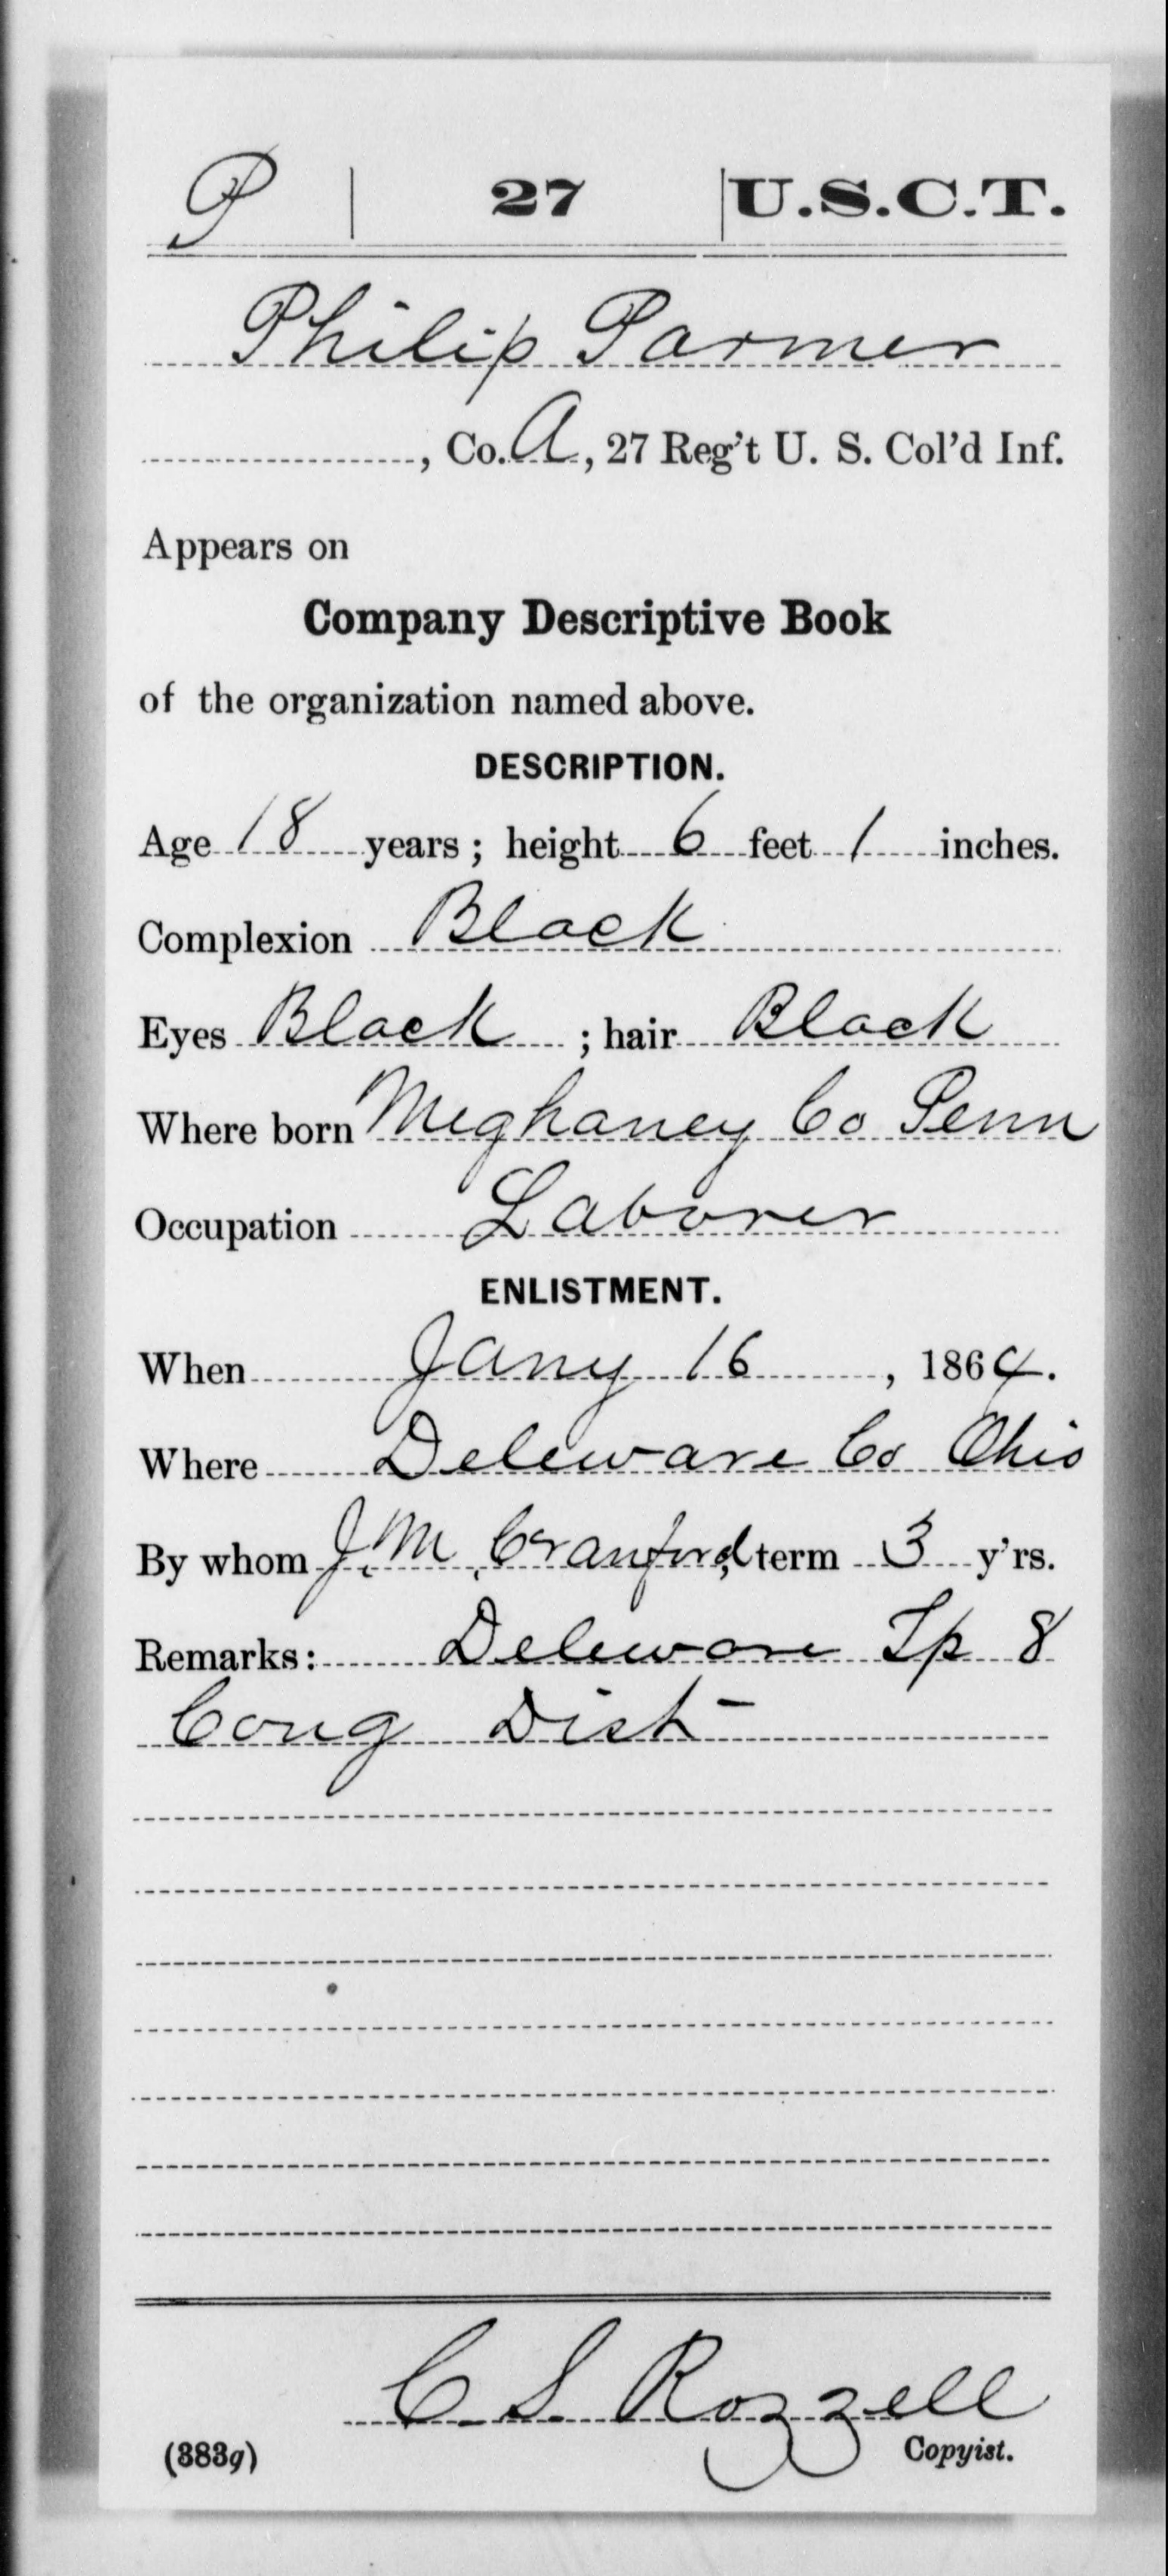 P | 27 | U.S.C.T.
Philip Parmer
, Co. A, 27 Reg't U. S. Col'd Inf.
Appears on
Company Descriptive Book
of the organization named above.
DESCRIPTION.
Age 18 years; height 6 feet 1 inches.
Complexion Black
Eyes Black ; hair Black
Where born Meghaney Co Penn
Occupation Laborer
ENLISTMENT.
When Jany 16, 1864.
Where Deleware Co Ohio
By whom J. M. Cranford, term 3 y'rs.
Remarks: Deleware Tp 8
Cong Dist
C. S. Rozzell
(383g) Copyist.